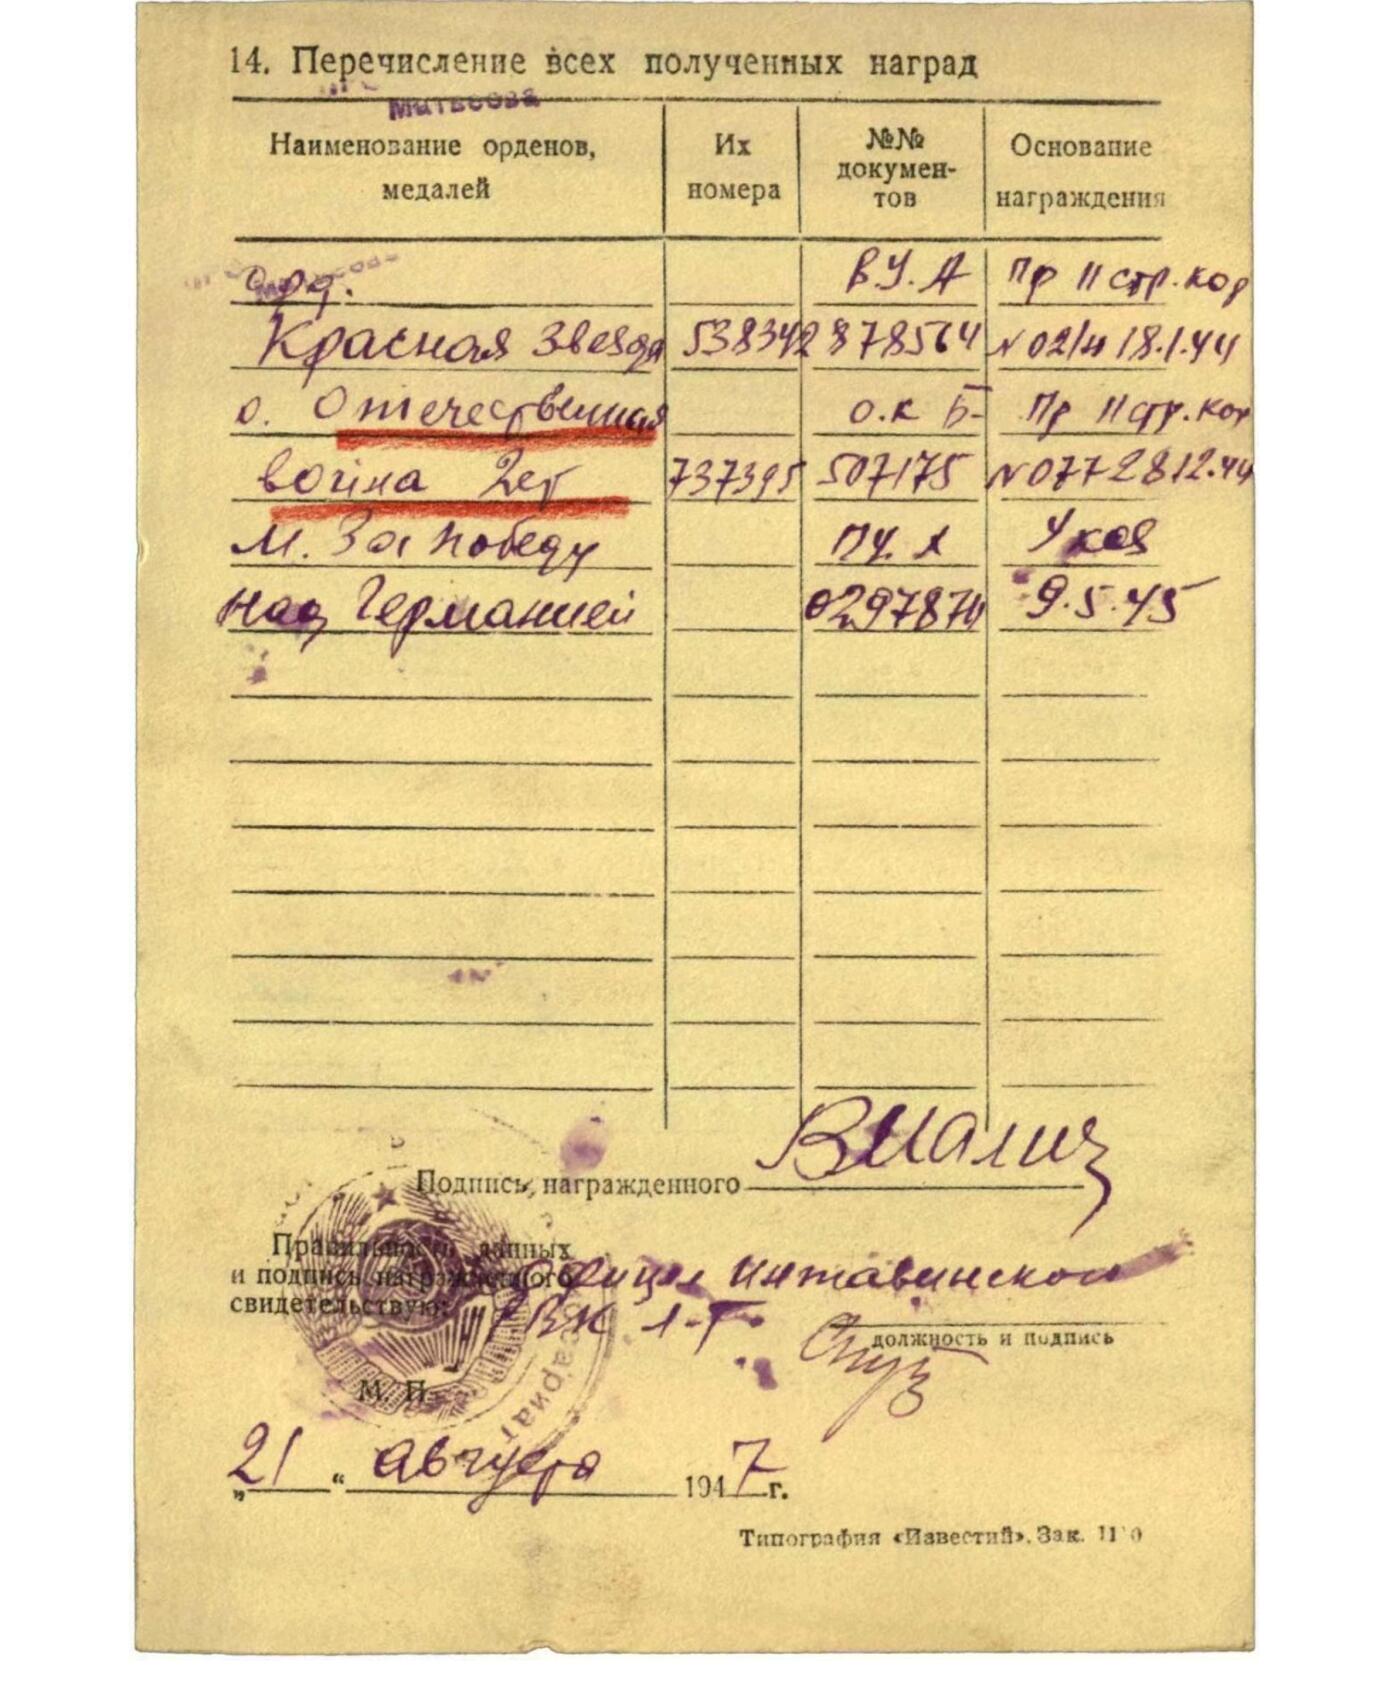 14. Перечисление всех полученных наград
Матвеова
Наименование орденов, медалей
Их номера
№№ докумен-тов
Основание награждения
орд. В.У.А Пр 11 стр. кор
Красная Звезда 538342 878564 N 02/н 18.1.44
о. Отечественная о.к Б- Пр 11 стр. кор
война 2ст 737395 507175 N 077 28 12.44
М. За победу Указ
над Германией 0297874 9.5.45
Подпись награжденного
Правильность данных
и подпись награжденного
свидетельствую:
РВК
должность и подпись
М. П.
„21“ августа 1947 г.
Типография «Известий». Зак.